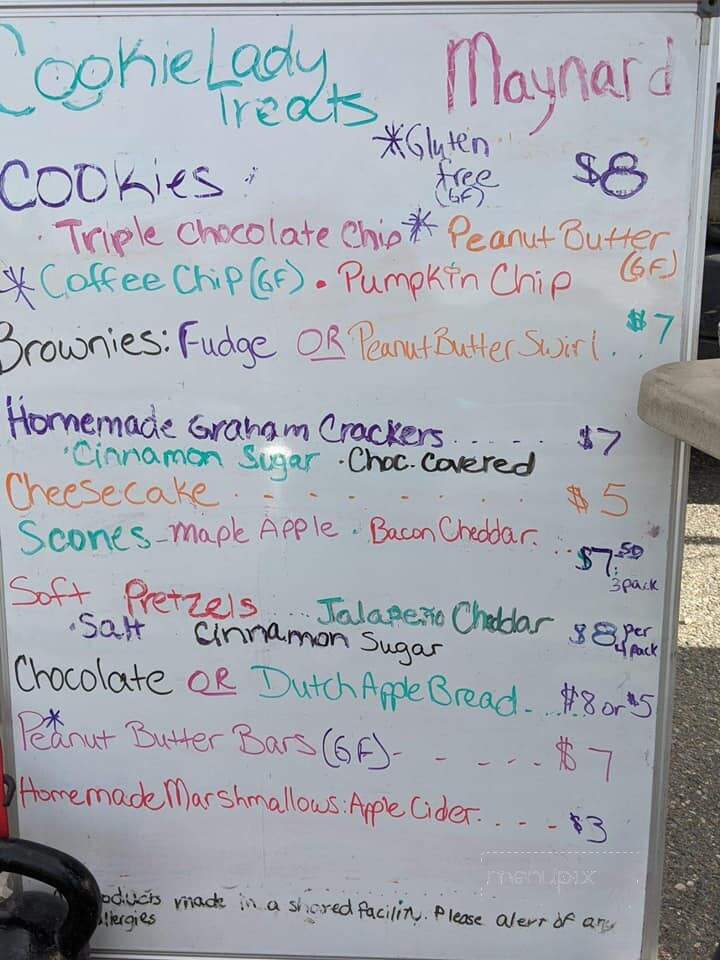 CookieLady Maynard
Treats
*Gluten
free
(GF)
COOKies: $8
· Triple Chocolate Chip * Peanut Butter
(GF)
* Coffee Chip (GF) • Pumpkin Chip
Brownies: Fudge OR Peanut Butter Swirl . . $7
Homemade Graham Crackers ...... $7
·Cinnamon Sugar ·Choc. Covered
Cheesecake . - - . - . . . . $5
Scones - Maple Apple · Bacon Cheddar. ... $7.50
3pack
Soft Pretzels .... Jalapeño Cheddar
·Salt Cinnamon Sugar $8 per
4pack
Chocolate OR Dutch Apple Bread - .... $8 or $5
Peanut* Butter Bars (GF) - - - - - - $7
Homemade Marshmallows: Apple Cider. . . - - $3
menupix
made in a shared facility. Please alert of any
allergies